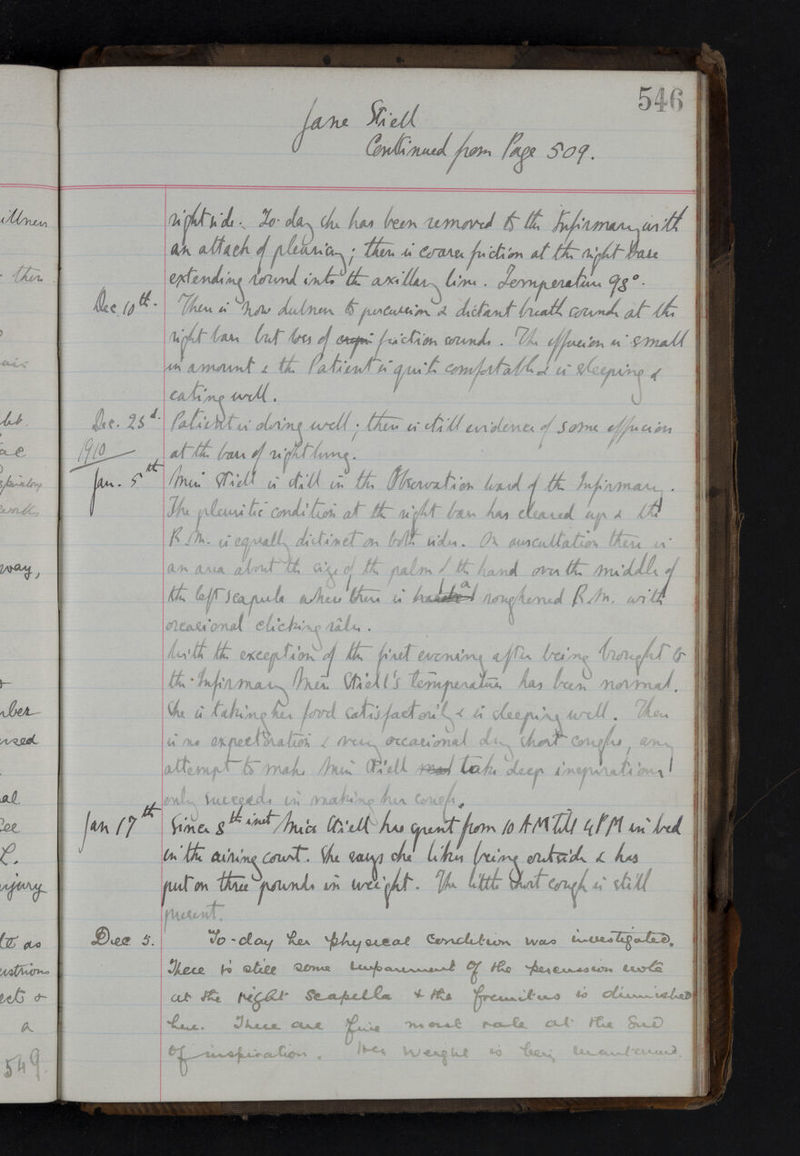 546
Jane Stiell
Continued from Page 509.
right side. To-day she has been removed to the Infirmary with
an attack of pleurisy; there is coarse friction at the right base
extending round into the axillary line. Temperature 98°.
Dec. 10th. There is now dulness to percussion & distant breath sounds at the
right base but loss of friction sounds. The effusion is small
in amount & the Patient is quite comfortable & is sleeping &
eating well.
Dec. 23d. Patient is doing well; there is still evidence of some effusion
1910 at the base of right lung.
Jan. 5th Miss Stiell is still in the Observation ward of the Infirmary.
The pleuritic condition at the right base has cleared up & the
R.M. is equally distinct on both sides. On auscultation there is
an area about the size of the palm of the hand over the middle of
the left scapula where there is a roughened R.M. with
occasional clicking râles.
With the exception of the first evening after being brought to
the Infirmary Miss Stiell's temperature has been normal.
She is taking her food satisfactorily & is sleeping well. There
is no expectoration & very occasional dry short coughs, any
attempt to make Miss Stiell take deep inspirations
only succeeds in making her cough.
Jan 17th Since 8th inst Miss Stiell has spent from 10 AM till 4 PM in bed
in the airing court. She says she likes being outside & has
put on three pounds in weight. The little short cough is still
present.
Dec 5. To-day her physical condition was investigated.
There is still some impairment of the percussion note
at the right scapella & the fremitus is diminished
here. There are fine moist rale at the end
of inspiration. Her weight is being maintained.
illness
then
way,
ber
used
al
see
L.
injury
to as
ects &
a
549